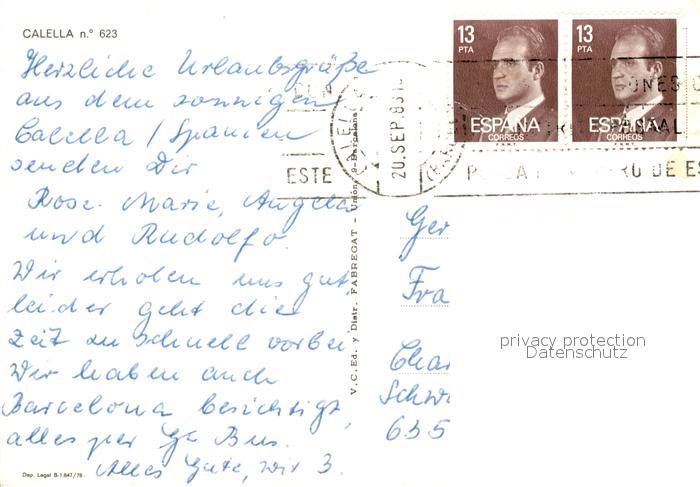 CALELLA n.º 623
Herzliche Urlaubsgrüße
aus dem sonnigen
Calella / Spanien
senden Dir
Rose-Marie, Angela
und Rudolfo.
Wir erholen uns gut,
leider geht die
Zeit zu schnell vorbei.
Wir haben auch
Barcelona besichtigt,
alles per Bus.
Alles Gute, wir 3.
Dep. Legal B-1.647/78
V. C. Ed. y Distr. FABREGAT - Barcelona
13
PTA
ESPAÑA
CORREOS
F.N.M.T.
13
PTA
ESPAÑA
CORREOS
F.N.M.T.
20.SEP.83
ESTE
DE ES
Ger
Fra
Char
Schw
635
privacy protection
Datenschutz